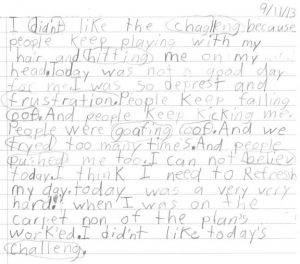 9/11/13
I didn't like the challeng because
people keep playing with my
hair and hitting me on my
head. Today was not a good day
for me. I was so deprest and
frustration. People keep falling
oof. And people keep kicking me.
People were goating oof. And we
tryed too many times. And people
pushed me too. I can not believ
today. I think I need to Refresh
my day. today was a very very
hard. when I was on the
carpet non of the plan's
work'ed. I didn't like today's
challeng.